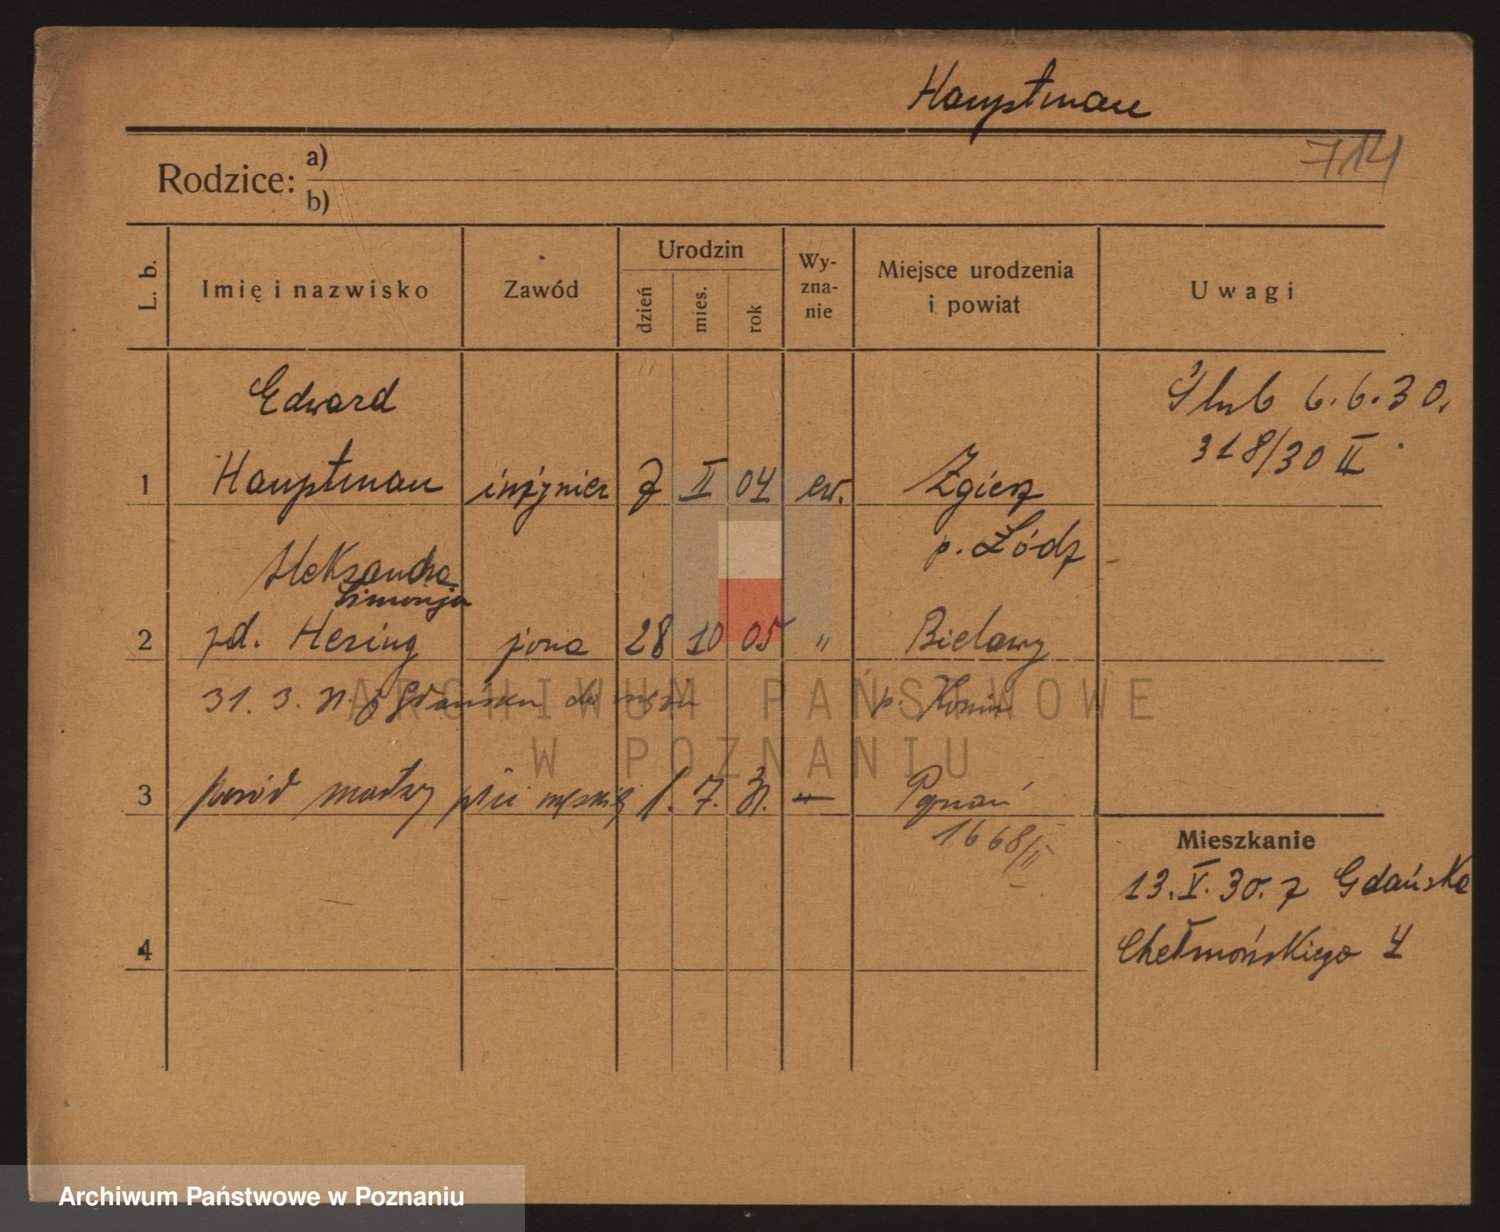 Hauptman
714
Rodzice: a)
b)
L. b. Imię i nazwisko Zawód Urodzin dzień mies. rok Wy-zna-nie Miejsce urodzenia i powiat Uwagi
Edward Ślub 6.6.30.
318/30 II
1 Hauptman inżynier 7 II 04 ew. Zgierz
p. Łódz
Aleksandra
2 zd. Hering żona 28 10 05 " Bielawy
31. 3. 31. z Gdańska do męża p. Konin
3 poród martwy płci męskiej 1. 7. 31. " Poznań
1668/II
Mieszkanie
13. V. 30. z Gdańska
4 Chełmońskiego 4
ARCHIWUM PAŃSTWOWE
W POZNANIU
Archiwum Państwowe w Poznaniu